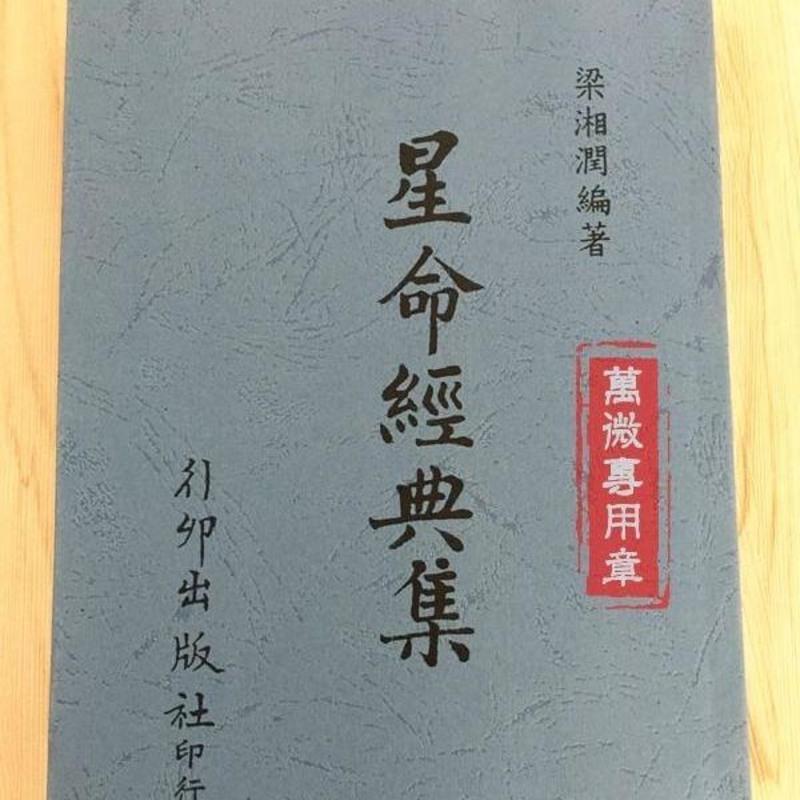 梁湘潤編著
萬微專用章
星命經典集
行卯出版社印行